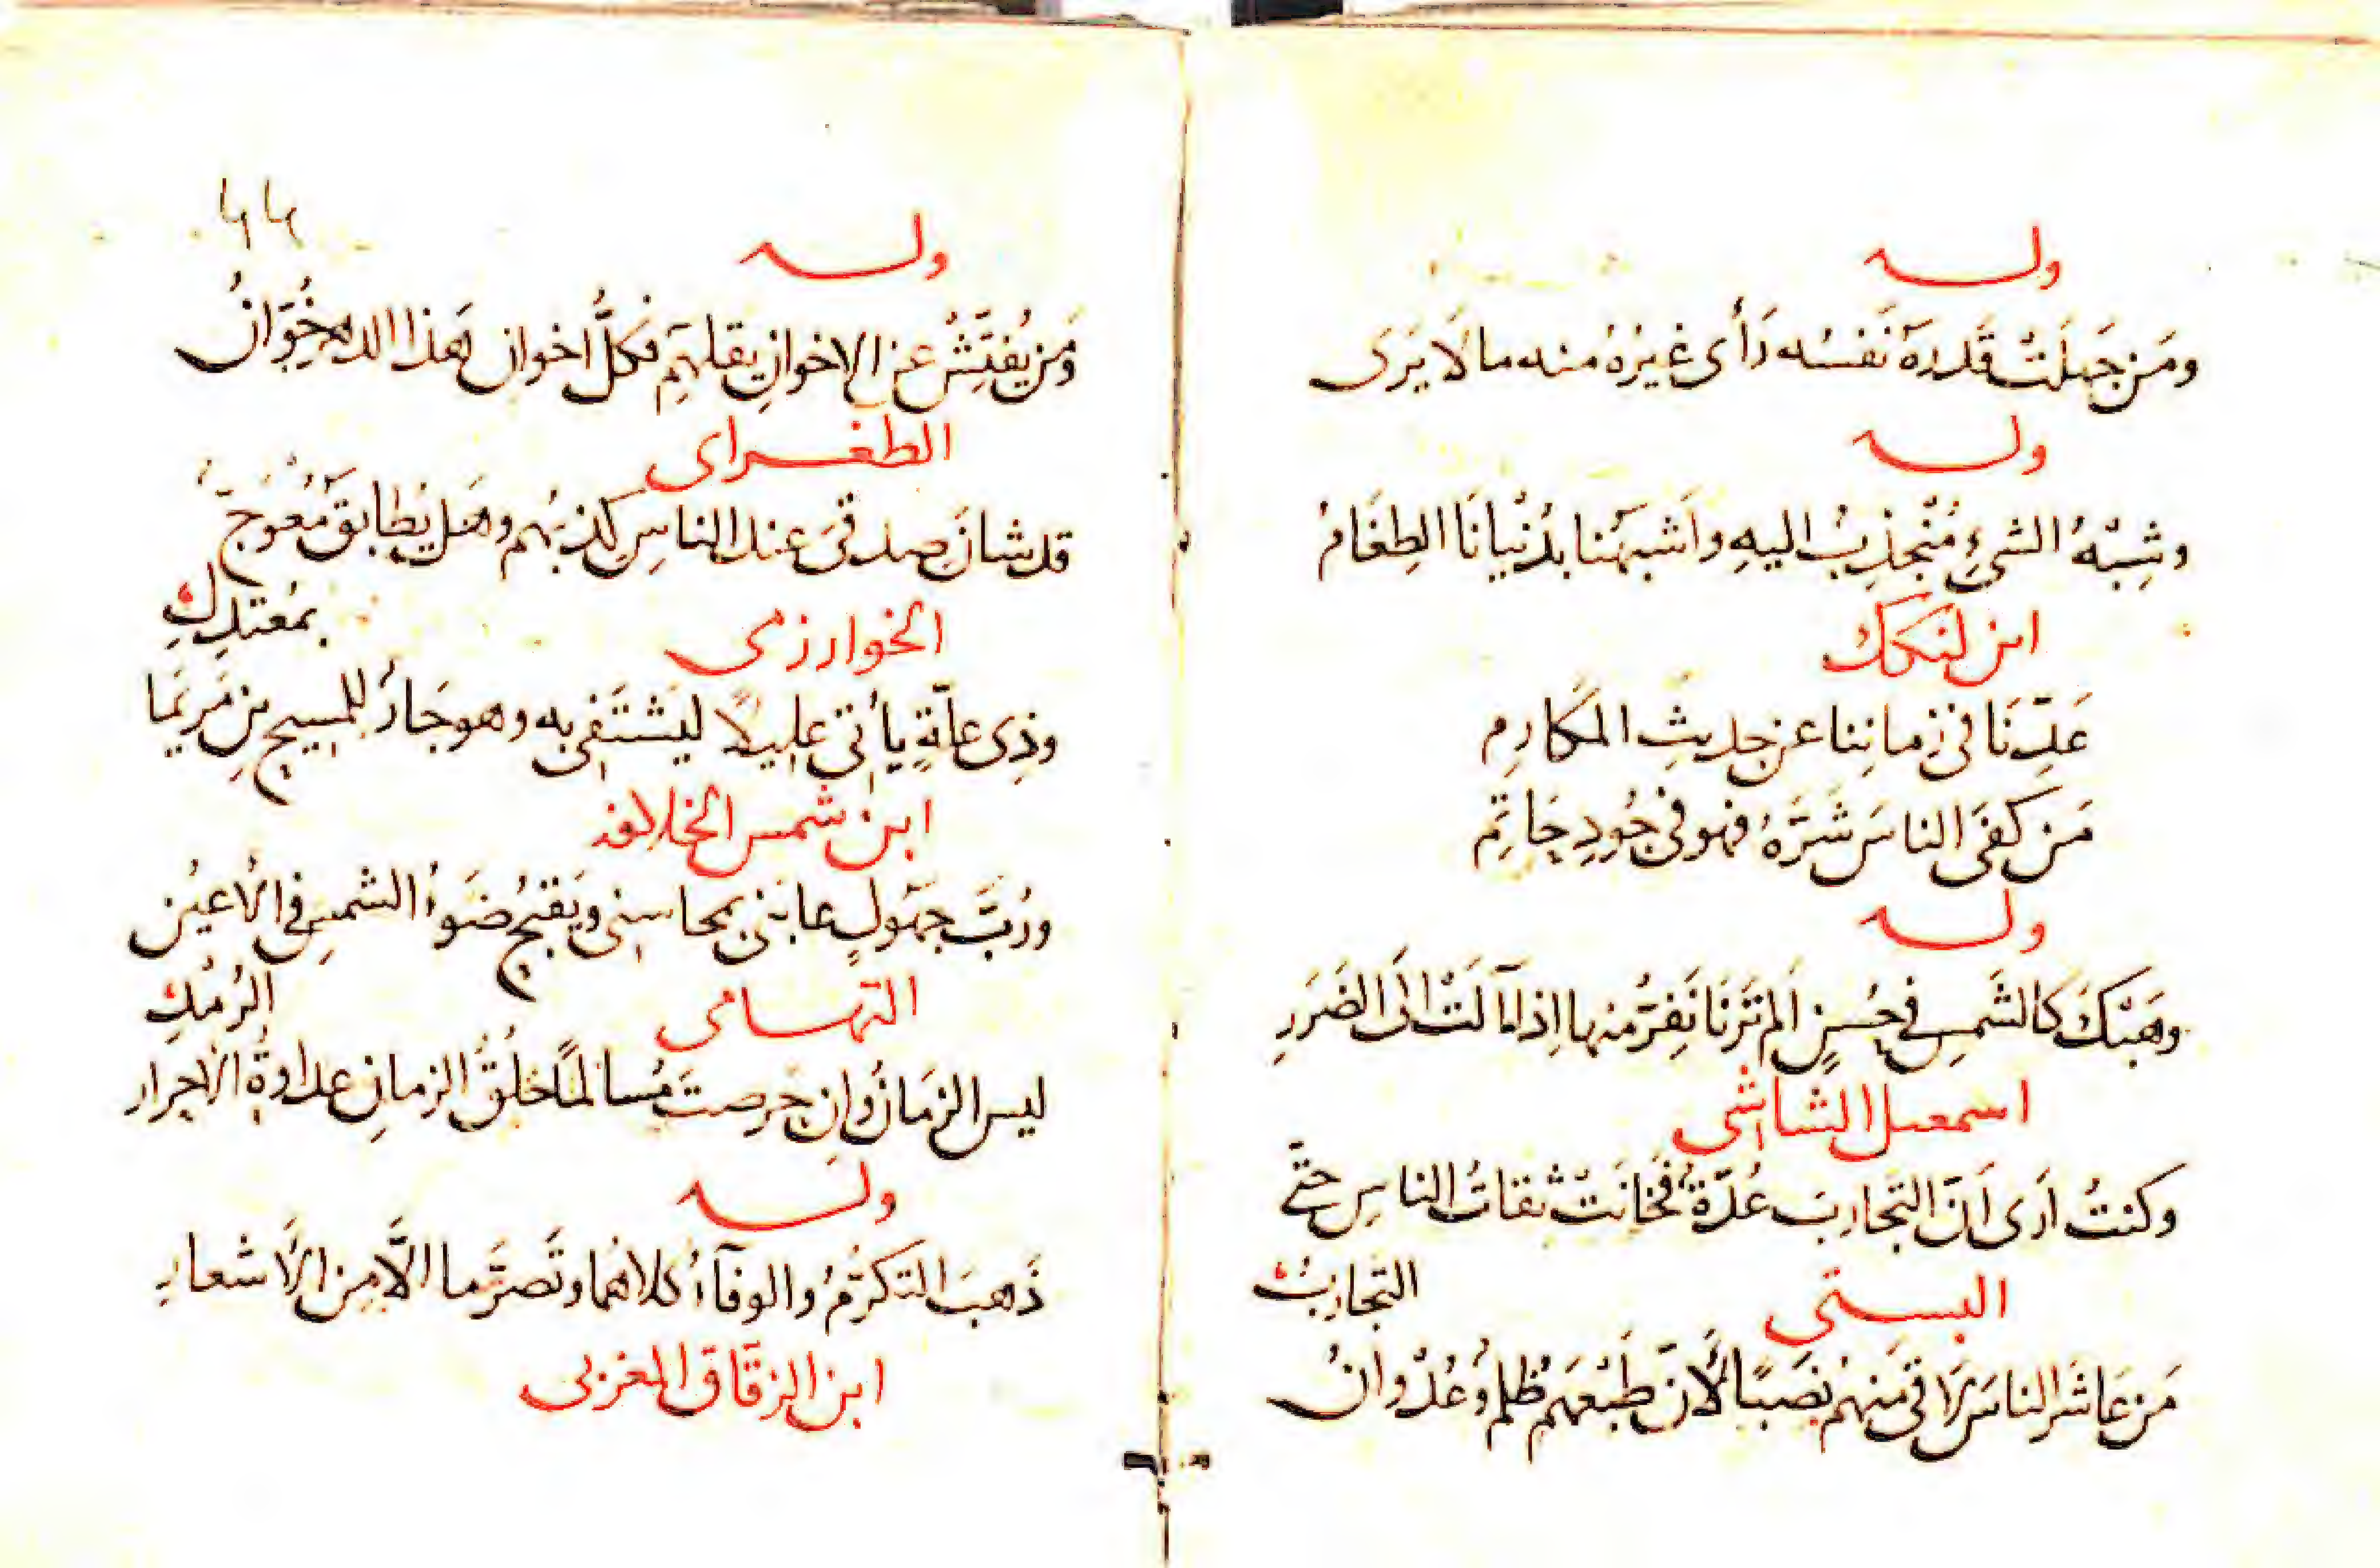 وله
ومَن جَهِلَتْ قَدرَهُ نَفسُه رَأى غيرُهُ منه ما لَا يَرَى
وله
وشِبْهُ الشيءِ مُنْجذِبُ اليهِ واَشبَهُنا بدُنْيانَا الطِغَامُ
ابن لنكك
عَدِّنَا في زماننِا عن حديثِ المكَارِمِ
مَن كفَى الناسَ شَرَّهُ فهو في جُودِ حَاتِم
وله
وهَبْكَ كالشَمسِ في حُسنٍ اَلم تَرَنَا نَفِرُّ منها اِذا مَالَتْ اِلَى الضَرَرِ
اسمعيل الشاشى
وكنتُ اَرَى اَنَّ التَجاربَ عُدّةٌ فَخَانَتْ ثقاتُ الناسِ حتَّى
التجاربُ
البستى
مَن عَاشَرَ الناسَ لَاقى مِنهُم نَصَبًا لأَنّ طَبْعَهم ظُلم وَعُدْوانُ
٦٦
وله
وَمَن يُفَتِّشْ عن الاخوانِ يَقلهِم فكلُّ اخوان هَذا الدهرِ خُوَّانُ
الطغراى
قد شانَ صدقىَ عند الناسِ كذبهُم وهَل يُطابقُ مُعْوَجّ
بمُعتدلِ
الخوارزمى
وذِى علّةٍ يأتى عليلًا ليَشْتَفى به وهو جَارٌ للمسيحِ بنِ مَريَما
ابن شمس الخلافة
ورُبَّ جَهُولٍ عابَنى بمحاسِنى ويَقبُحُ ضَوءُ الشمسِ في الأعيُن
الرُمْدِ
التهامى
ليس الزمَانُ وَان حَرصتَ مُسالمًا خُلُقُ الزمانِ عداوةُ الأحرار
وله
ذَهبَ التكَرُّمُ والوفآءُ كلاهُما وتَصرّما الّا مِن الأَشعارِ
ابن الزقَاق المغربى